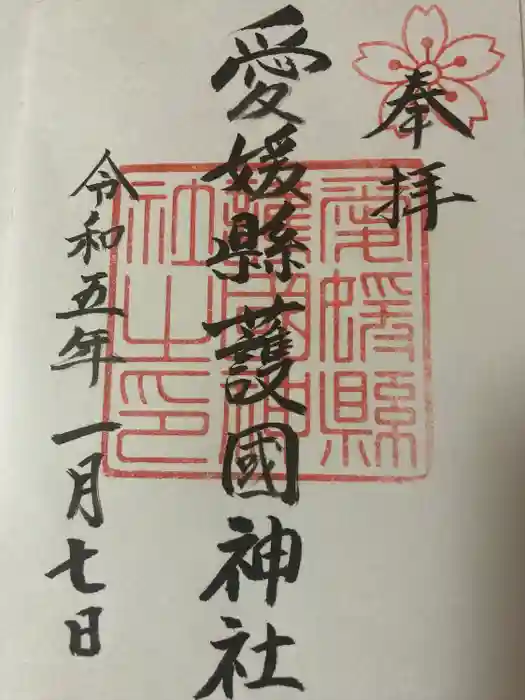 奉拝
愛媛縣護國神社
令和五年一月七日
愛媛縣
護國神
社之印